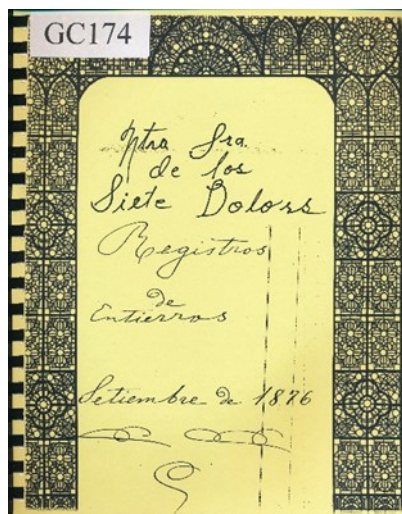 GC174
Ntra Sra.
de los
Siete Dolors
Registros
de
Entierros
Setiembre de 1876